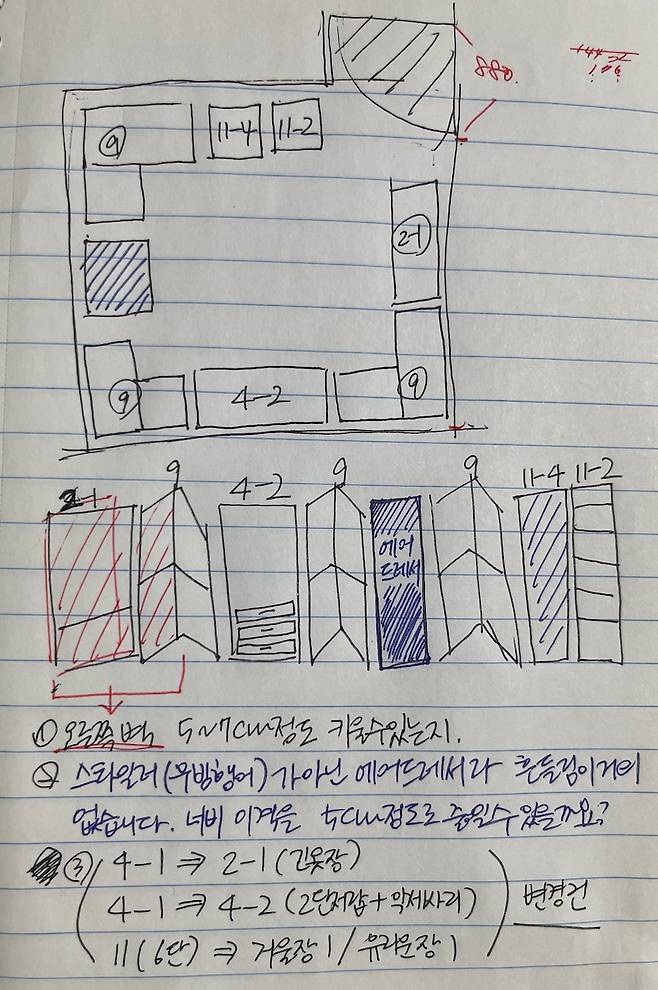 880.
9
11-4
11-2
2-1
9
4-2
9
2-1
9
4-2
9
에어
드레서
9
11-4
11-2
① 오른쪽 벽 5~7cm정도 키울수있는지.
② 스타일러(무빙행어)가아닌 에어드레서라 흔들림이거의
없습니다. 너비 이격을 5cm정도로 줄일수있을까요?
③ 4-1 ⇒ 2-1 (긴옷장)
4-1 ⇒ 4-2 (2단서랍+악세사리)
11(6단) ⇒ 거울장1/유리문장1
변경건